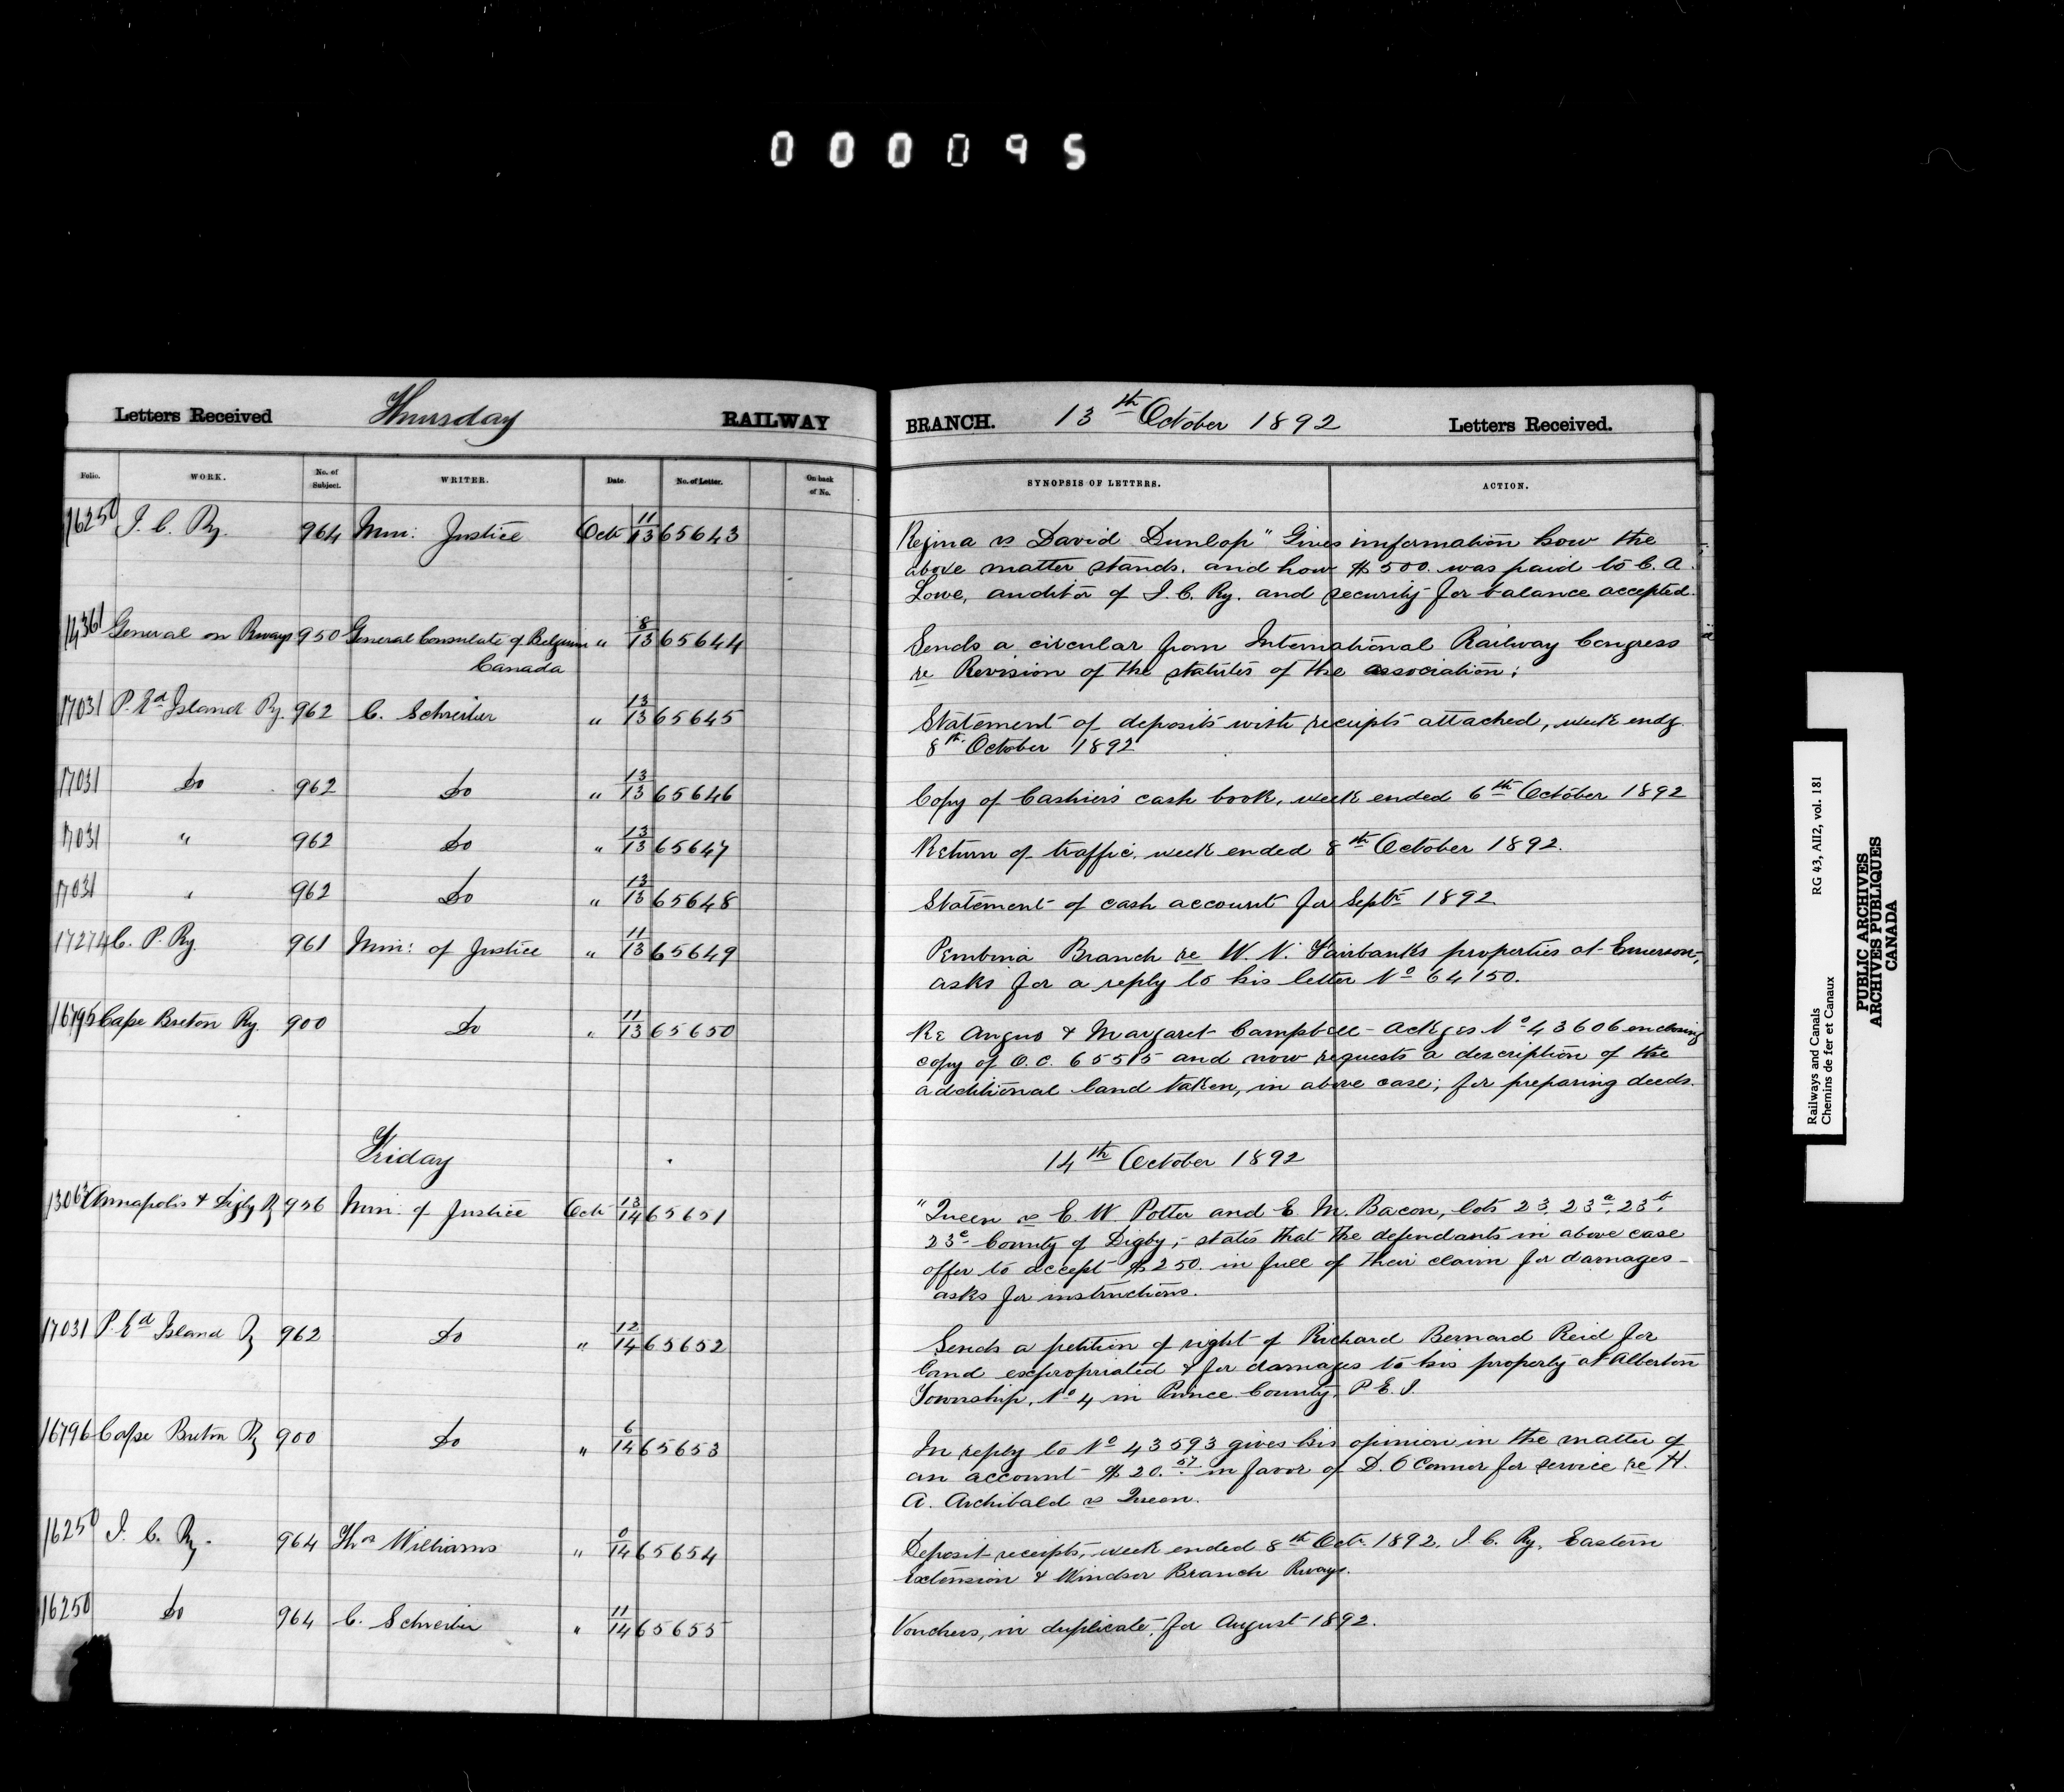 000095
Letters Received Thursday RAILWAY BRANCH. 13th October 1892 Letters Received.
Folio. WORK. No. of Subject. WRITER. Date. No. of Letter. On back of No. SYNOPSIS OF LETTERS. ACTION.
16250 I. C. Ry. 964 Min: Justice Octr 11/13 65643 Regina vs David Dunlop" Gives information how the
above matter stands. and how $500. was paid to C. A.
Lowe, auditor of I. C. Ry. and security for balance accepted.
14361 General on Rways 950 General Consulate of Belgium " 8/13 65644 Sends a circular from International Railway Congress
Canada re Revision of the statutes of the association;
17031 P. Ed Island Ry. 962 C. Schreiber " 13/13 65645 Statement of deposits with receipts attached, week endg.
8th October 1892
17031 Do 962 Do " 13/13 65646 Copy of Cashiers cash book, week ended 6th October 1892
17031 " 962 Do " 13/13 65647 Return of traffic, week ended 8th October 1892.
17031 " 962 Do " 13/13 65648 Statement of cash account for Septr 1892
17274 C. P. Ry. 961 Min: of Justice " 11/13 65649 Pembina Branch re W. N. Fairbanks properties at Emerson,
asks for a reply to his letter No 64150.
16795 Cape Breton Ry. 900 Do " 11/13 65650 Re Angus & Margaret Campbell - Ackges No 43606 enclosing
copy of O.C. 65515 and now requests a description of the
additional land taken, in above case; for preparing deeds.
Friday 14th October 1892
Annapolis & Digby Ry 956 Min: of Justice Octr 13/14 65651 "Queen vs E. W. Potter and E. M. Bacon, lots 23, 23a, 23b,
23c County of Digby, - states that the defendants in above case
offer to accept $250. in full of their claim for damages -
asks for instructions.
17031 P. Ed Island Ry 962 Do " 12/14 65652 Sends a petition of right of Richard Bernard Reid for
land expropriated & for damages to his property at Alberton
Township, No 4 in Prince County, P. E. I.
16796 Cape Breton Ry 900 Do " 6/14 65653 In reply to No 43593 gives his opinion in the matter of
an account $20.57 in favor of D. O'Connor for service re H.
A. Archibald vs Queen.
16250 I. C. Ry. 964 Thos Williams " 0/14 65654 Deposit receipts, week ended 8th Octr 1892. I. C. Ry. Eastern
Extension & Windsor Branch Rways.
16250 Do 964 C. Schreiber " 11/14 65655 Vouchers, in duplicate, for August 1892.
Railways and Canals RG 43, AII2, vol. 181
Chemins de fer et Canaux
PUBLIC ARCHIVES
ARCHIVES PUBLIQUES
CANADA